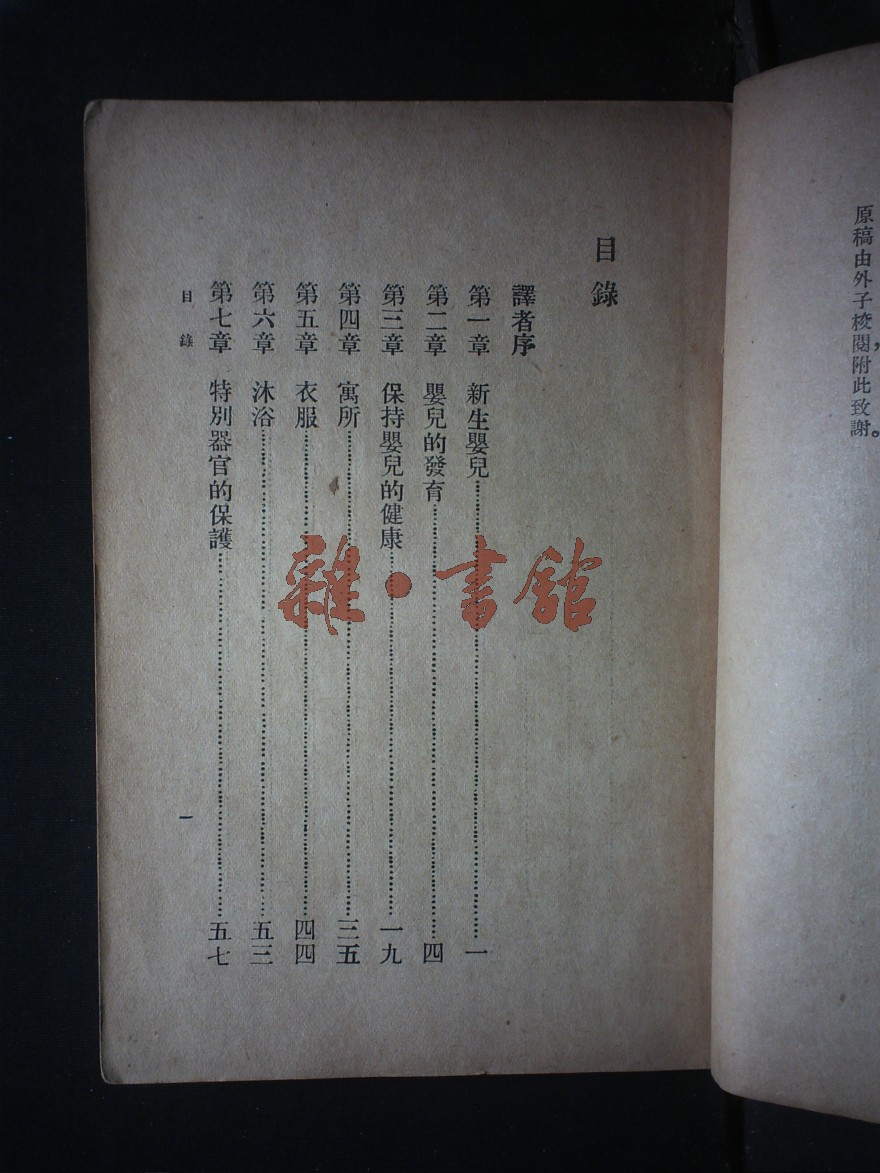 原稿由外子校閱，附此致謝。
目錄
譯者序
第一章 新生嬰兒……一
第二章 嬰兒的發育……四
第三章 保持嬰兒的健康……一九
第四章 寓所……三五
第五章 衣服……四四
第六章 沐浴……五三
第七章 特別器官的保護……五七
目錄 一
雜·書館